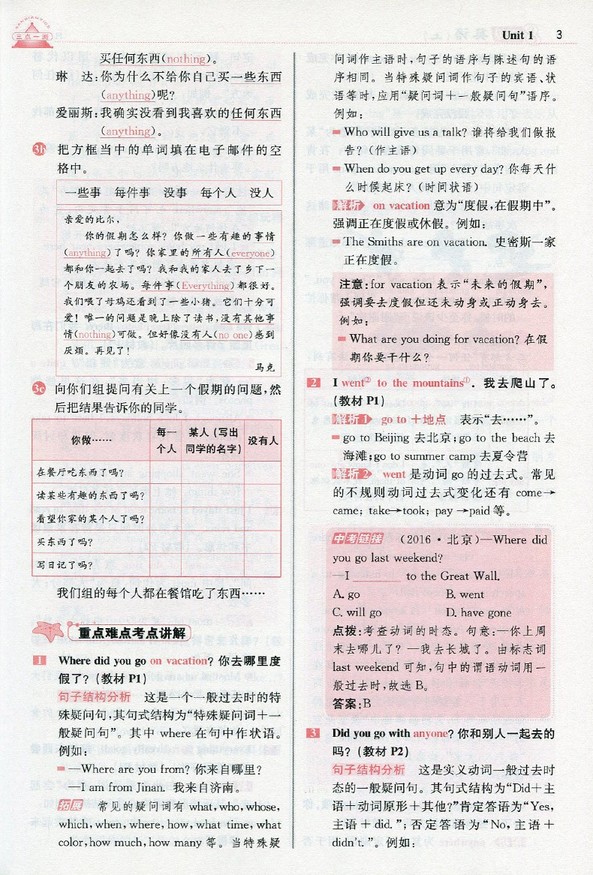 三点一测
Unit 1 3
买任何东西(nothing)。
琳 达:你为什么不给你自己买一些东西
(anything)呢?
爱丽斯:我确实没看到我喜欢的任何东西
(anything)。
3b 把方框当中的单词填在电子邮件的空
格中。
一些事 每件事 没事 每个人 没人
亲爱的比尔,
你的假期怎么样?你做一些有趣的事情
(anything)了吗?你家里的所有人(everyone)
都和你一起去了吗?我和我的家人去了乡下一
个朋友的农场。每件事(Everything)都很好。
我们喂了母鸡还看到了一些小猪。它们十分可
爱!唯一的问题是晚上除了读书,没有其他事
情(nothing)可做。但好像没有人(no one)感到
厌烦。再见了!
马克
3c 向你们组提问有关上一个假期的问题,然
后把结果告诉你的同学。
你做…… 每一个人 某人(写出同学的名字) 没有人
在餐厅吃东西了吗?
读某些有趣的东西了吗?
看望你家的某个人了吗?
买东西了吗?
写日记了吗?
我们组的每个人都在餐馆吃了东西……
重点难点考点讲解
1 Where did you go on vacation? 你去哪里度
假了?(教材 P1)
句子结构分析 这是一个一般过去时的特
殊疑问句,其句式结构为“特殊疑问词+一
般疑问句”。其中 where 在句中作状语。
例如:
—Where are you from? 你来自哪里?
—I am from Jinan. 我来自济南。
拓展 常见的疑问词有 what, who, whose,
which, when, where, how, what time, what
color, how much, how many 等。当特殊疑
问词作主语时,句子的语序与陈述句的语
序相同。当特殊疑问词作句子的宾语、状
语等时,应用“疑问词+一般疑问句”语序。
例如:
Who will give us a talk? 谁将给我们做报
告?(作主语)
When do you get up every day? 你每天什
么时候起床?(时间状语)
解析 on vacation 意为“度假,在假期中”。
强调正在度假或休假。例如:
The Smiths are on vacation. 史密斯一家
正在度假。
注意:for vacation 表示“未来的假期”,
强调要去度假但还未动身或正动身去。
例如:
What are you doing for vacation? 在假
期你要干什么?
2 I went② to the mountains①. 我去爬山了。
(教材 P1)
解析1 go to +地点 表示“去……”。
go to Beijing 去北京;go to the beach 去
海滩;go to summer camp 去夏令营
解析2 went 是动词 go 的过去式。常见
的不规则动词过去式变化还有 come→
came; take→took; pay→paid 等。
中考链接 (2016·北京)—Where did
you go last weekend?
—I ______ to the Great Wall.
A. go B. went
C. will go D. have gone
点拨:考查动词的时态。句意:—你上周
末去哪儿了?—我去长城了。由标志词
last weekend 可知,句中的谓语动词用一
般过去时,故选 B。
答案:B
3 Did you go with anyone? 你和别人一起去的
吗?(教材 P2)
句子结构分析 这是实义动词一般过去时
态的一般疑问句。其句式结构为“Did+主
语+动词原形+其他?”肯定答语为“Yes,
主语+did.”;否定答语为“No,主语+
didn't.”。例如: